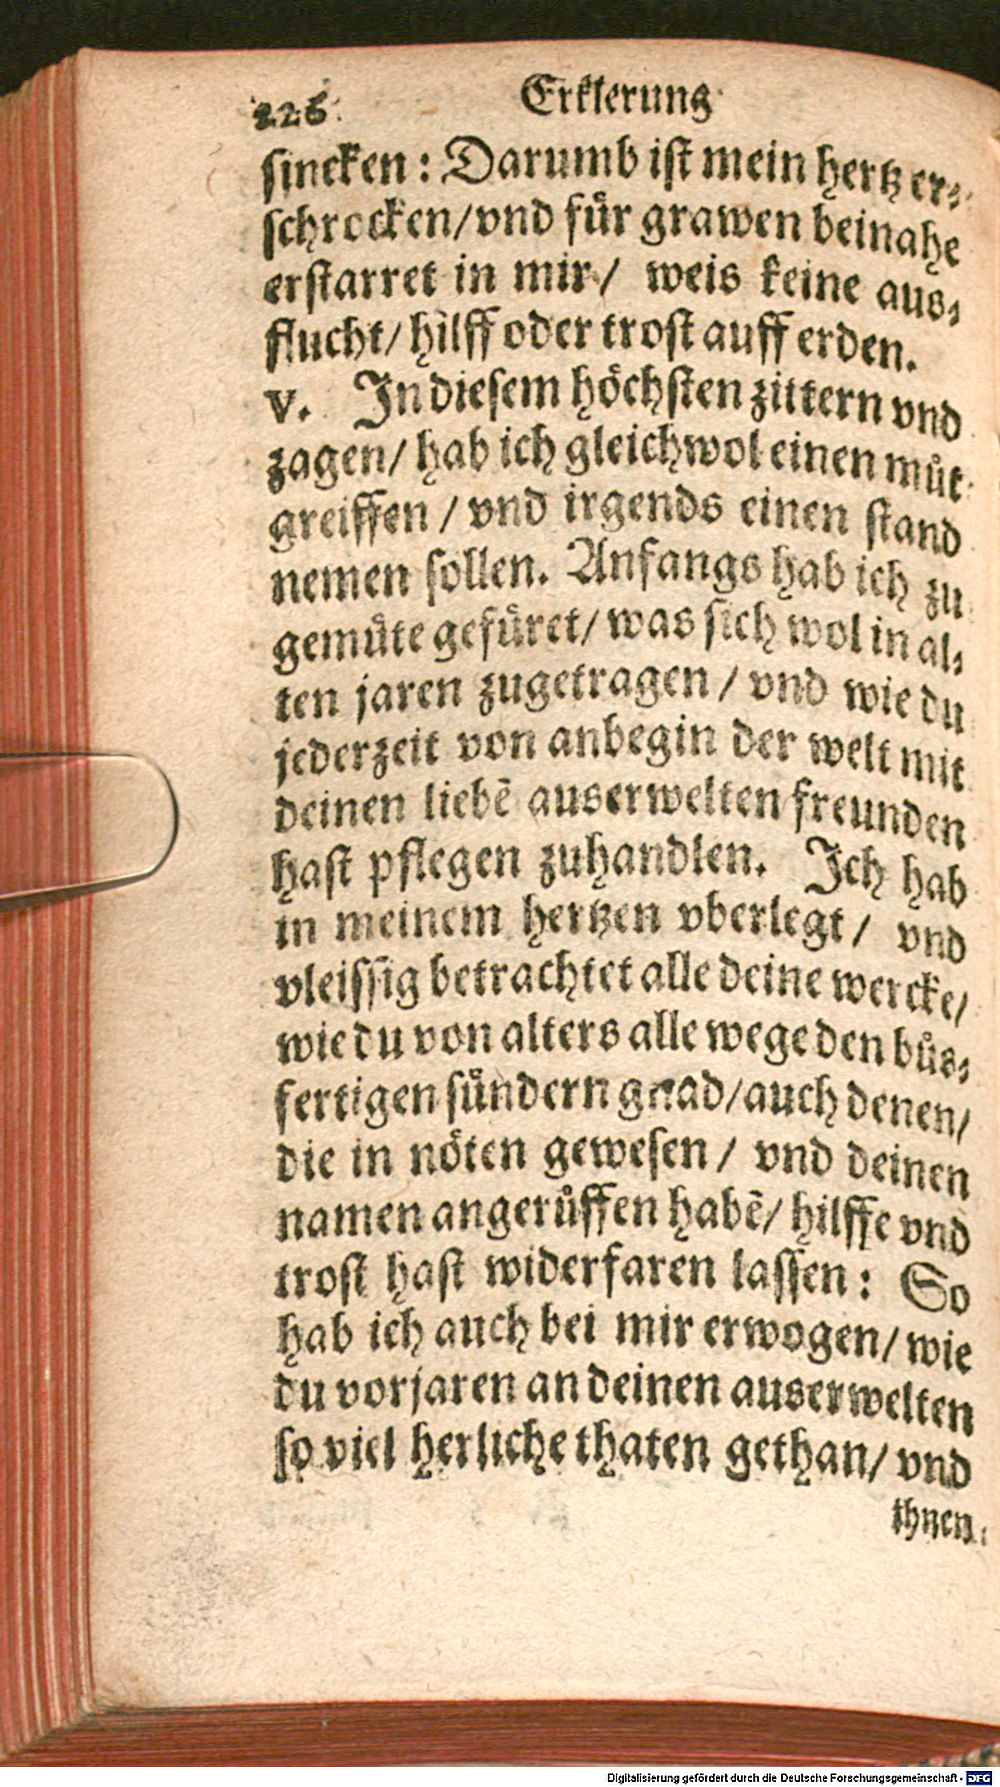 226. Erklerung
sincken: Darumb ist mein hertz er-
schrocken/vnd für grawen beinahe
erstarret in mir/ weis keine aus-
flucht/hilff oder trost auff erden.
V. In diesem höchsten zittern vnd
zagen/ hab ich gleichwol einen můt
greiffen / vnd irgends einen stand
nemen sollen. Anfangs hab ich zu
gemüte gefüret/ was sich wol in al-
ten jaren zugetragen / vnd wie du
jederzeit von anbegin der welt mit
deinen liebē auserwelten freunden
hast pflegen zuhandlen. Ich hab
in meinem hertzen vberlegt/ vnd
vleissig betrachtet alle deine wercke/
wie du von alters alle wege den bůs-
fertigen sündern gnad/auch denen/
die in nöten gewesen / vnd deinen
namen angerůffen habē/ hilffe vnd
trost hast widerfaren lassen: So
hab ich auch bei mir erwogen/ wie
du vorjaren an deinen auserwelten
so viel herliche thaten gethan/ vnd
ihnen
Digitalisierung gefördert durch die Deutsche Forschungsgemeinschaft - DFG